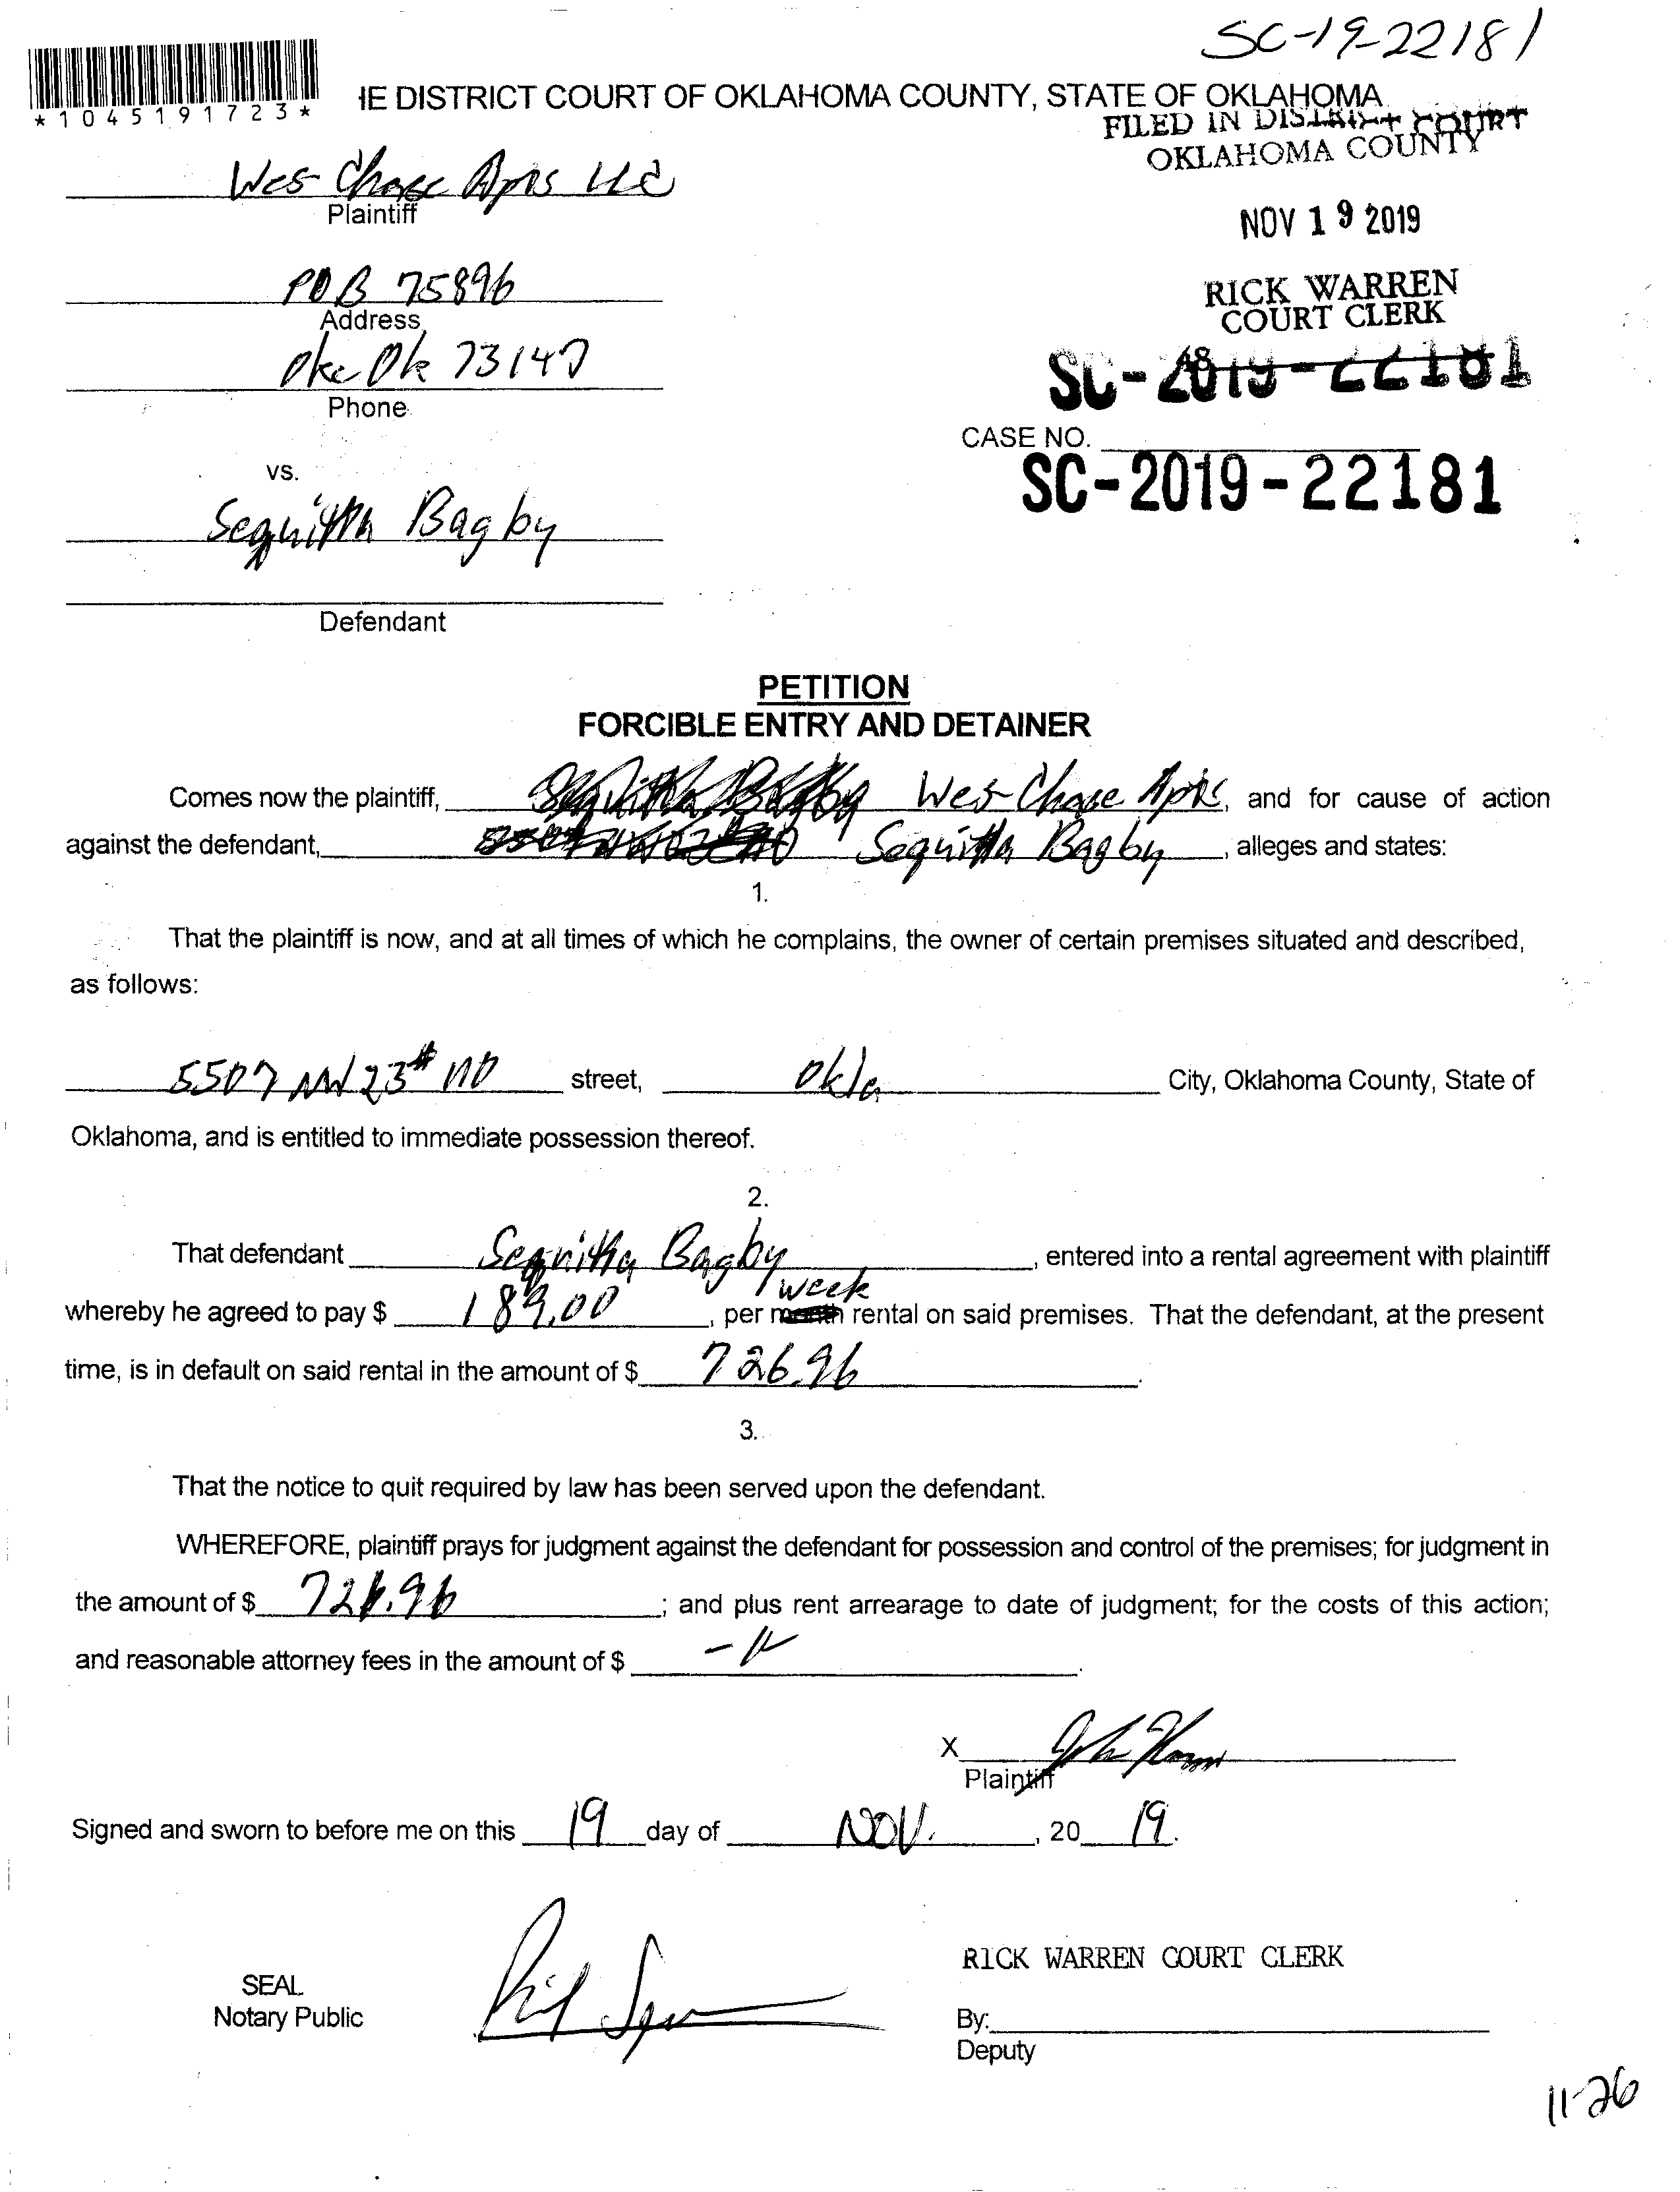 SC-19-22181
*1045191723*
HE DISTRICT COURT OF OKLAHOMA COUNTY, STATE OF OKLAHOMA
FILED IN DISTRICT COURT
OKLAHOMA COUNTY
Wes Chase Apts LLC
Plaintiff
NOV 19 2019
POB 75896
Address
RICK WARREN
COURT CLERK
Okc Ok 73147
Phone
48
SC-2019-22181
CASE NO.
SC-2019-22181
vs.
Sequitta Bagby
Defendant
PETITION
FORCIBLE ENTRY AND DETAINER
Comes now the plaintiff, Wes Chase Apts, and for cause of action
against the defendant, Sequitta Bagby, alleges and states:
1.
That the plaintiff is now, and at all times of which he complains, the owner of certain premises situated and described,
as follows:
5507 NW 23 # 110 street, Okla City, Oklahoma County, State of
Oklahoma, and is entitled to immediate possession thereof.
2.
That defendant Sequitta Bagby, entered into a rental agreement with plaintiff
week
whereby he agreed to pay $ 189.00, per month rental on said premises. That the defendant, at the present
time, is in default on said rental in the amount of $ 726.96.
3.
That the notice to quit required by law has been served upon the defendant.
WHEREFORE, plaintiff prays for judgment against the defendant for possession and control of the premises; for judgment in
the amount of $ 726.96; and plus rent arrearage to date of judgment; for the costs of this action;
and reasonable attorney fees in the amount of $ .
X
Plaintiff
Signed and sworn to before me on this 19 day of NOV., 20 19.
RICK WARREN COURT CLERK
SEAL
Notary Public
By:
Deputy
11-26